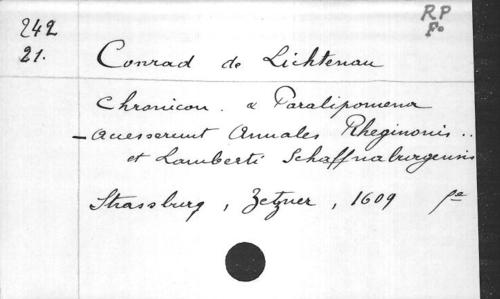 242
21.
RP
Fo
Conrad de Lichtenau
Chronicon. & Paralipomena
- accesserunt Annales Rheginonis..
et Lamberti Schaffnaburgensis
Strassburg, Zetzner, 1609 fe